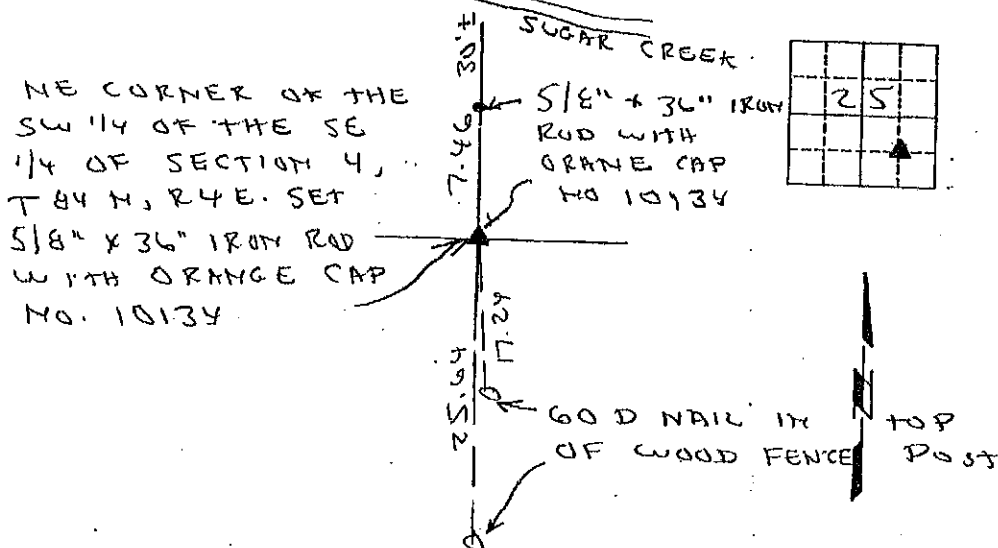 SUGAR CREEK
30±
25
NE CORNER OF THE
SW 1/4 OF THE SE
1/4 OF SECTION 4,
T 84 N, R4E. SET
5/8" X 36" IRON ROD
WITH ORANGE CAP
NO. 10134
5/8" X 36" IRON
ROD WITH
ORANE CAP
NO 10134
7.46
17.29
25.64
60 D NAIL IN TOP
OF WOOD FENCE POST
N